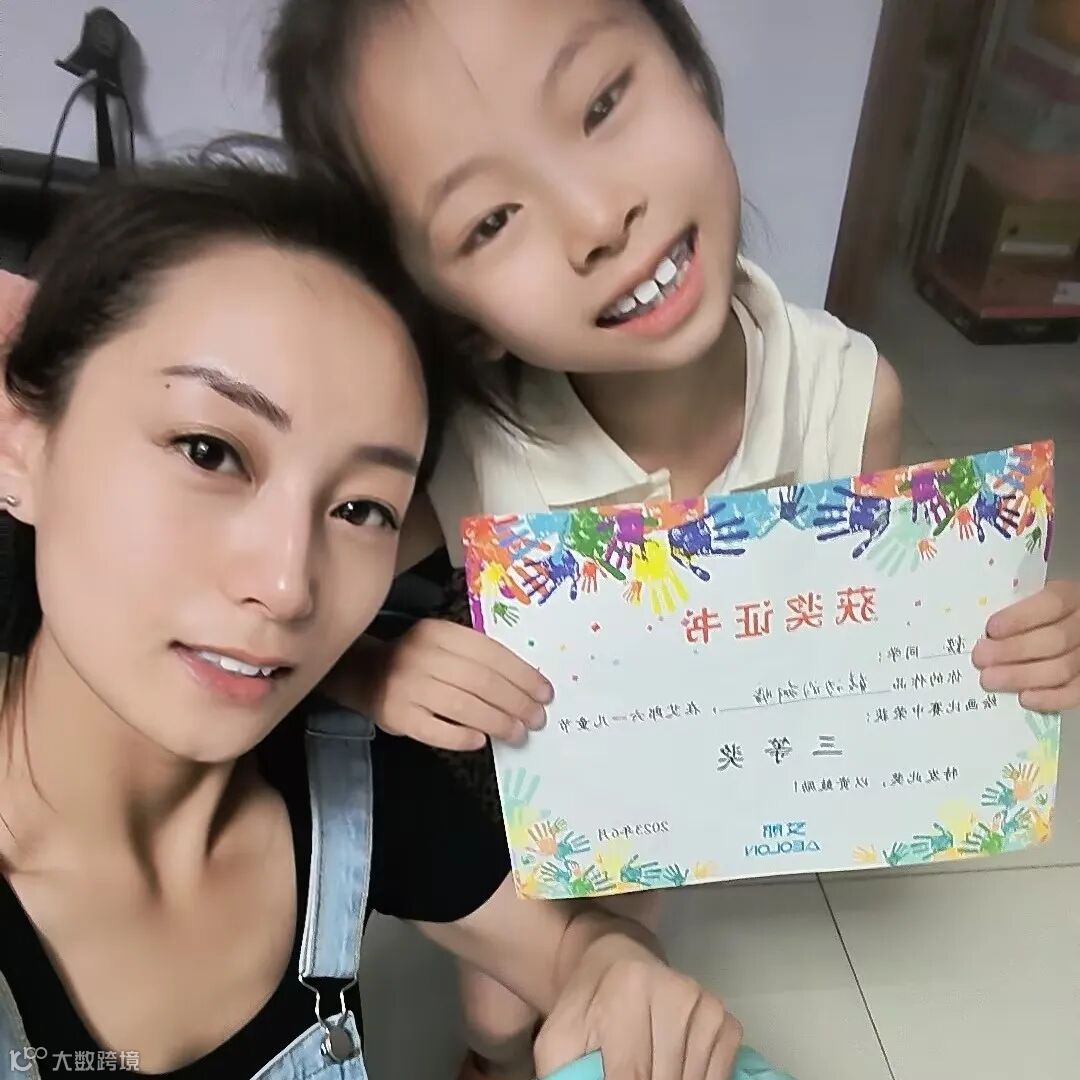 获奖证书
同学：
你的作品，在艾郎六一儿童节
绘画比赛中荣获：
三等奖
特发此奖，以资鼓励！
艾郎
AEOLON
2023年6月
大数跨境